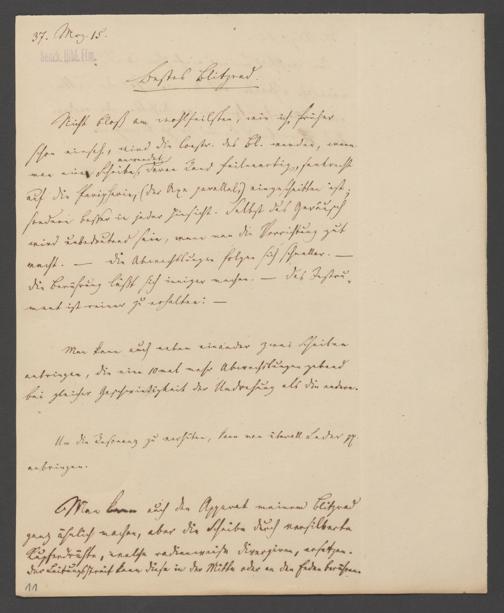 37. May 15.
Senck. Bibl. Ffm.
Bestes Blitzrad.
Nicht bloß am wohlfeilsten, wie ich früher
schon einsah, wird die Constr. des Bl. werden, wenn
man eine Scheibe anwendet, deren Rand feilenartig, senkrecht
auf die Peripherie, (der Axe parallel,) eingeschnitten ist;
sondern besser in jeder Hinsicht. Selbst das Geräusch
wird unbedeutend sein, wenn man die Vorrichtung gut
macht. — Die Abwechslungen folgen sich schneller. —
Die Berührung läßt sich inniger machen. — Das Instru-
ment ist reiner zu erhalten: —
Man kann auch neben einander zwei Scheiben
anbringen, die eine 10mal mehr Abwechslungen gebend
bei gleicher Geschwindigkeit der Umdrehung als die andere.
Um die Resonanz zu verhüten, kann man überall Leder pp.
anbringen.
Man kann auch den Apparat meinem Blitzrad
ganz ähnlich machen, aber die Scheibe durch versilberte
Kupferdrähte, welche radienweise divergiren, ersetzen.
Der Leitungsstreif kann diese in der Mitte oder an den Enden berühren.
11